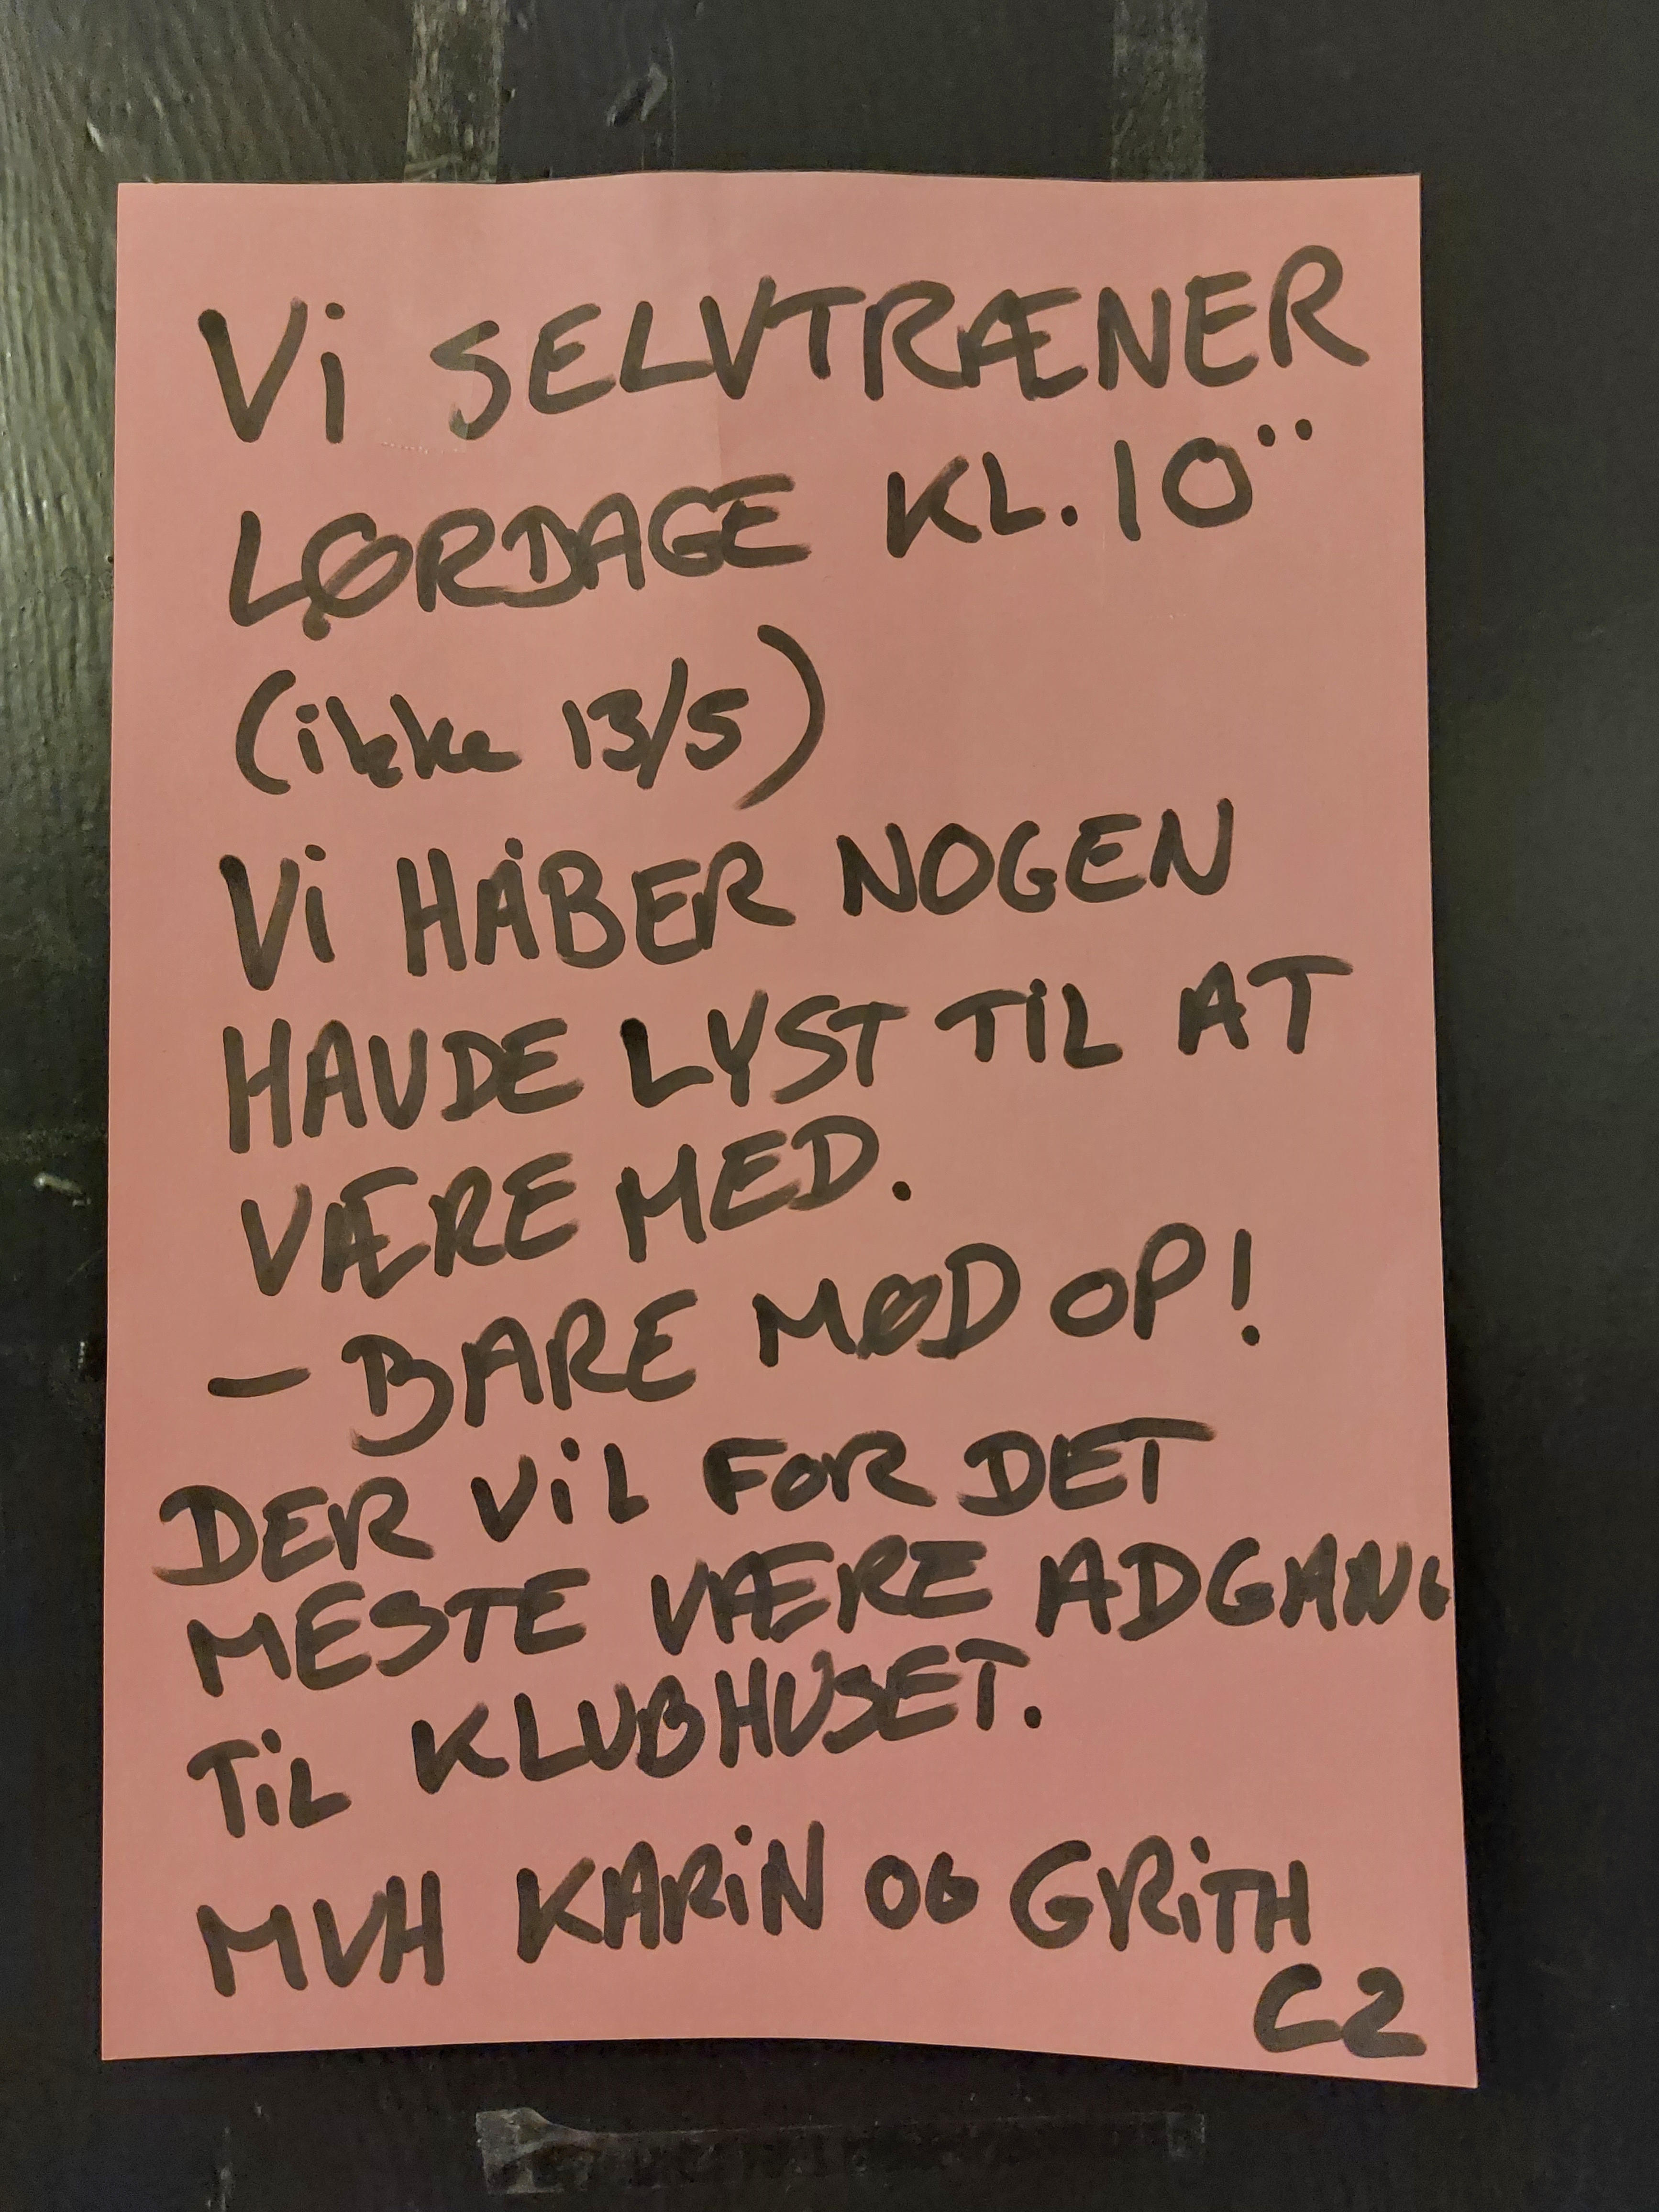 Vi SELVTRÆNER
LØRDAGE KL. 10¨
(ikke 13/5)
Vi HÅBER NOGEN
HAVDE LYST TiL AT
VÆRE MED.
- BARE MØD OP!
DER ViL FOR DET
MESTE VÆRE ADGANG
TiL KLUBHUSET.
MVH KARiN OG GRiTH
C2